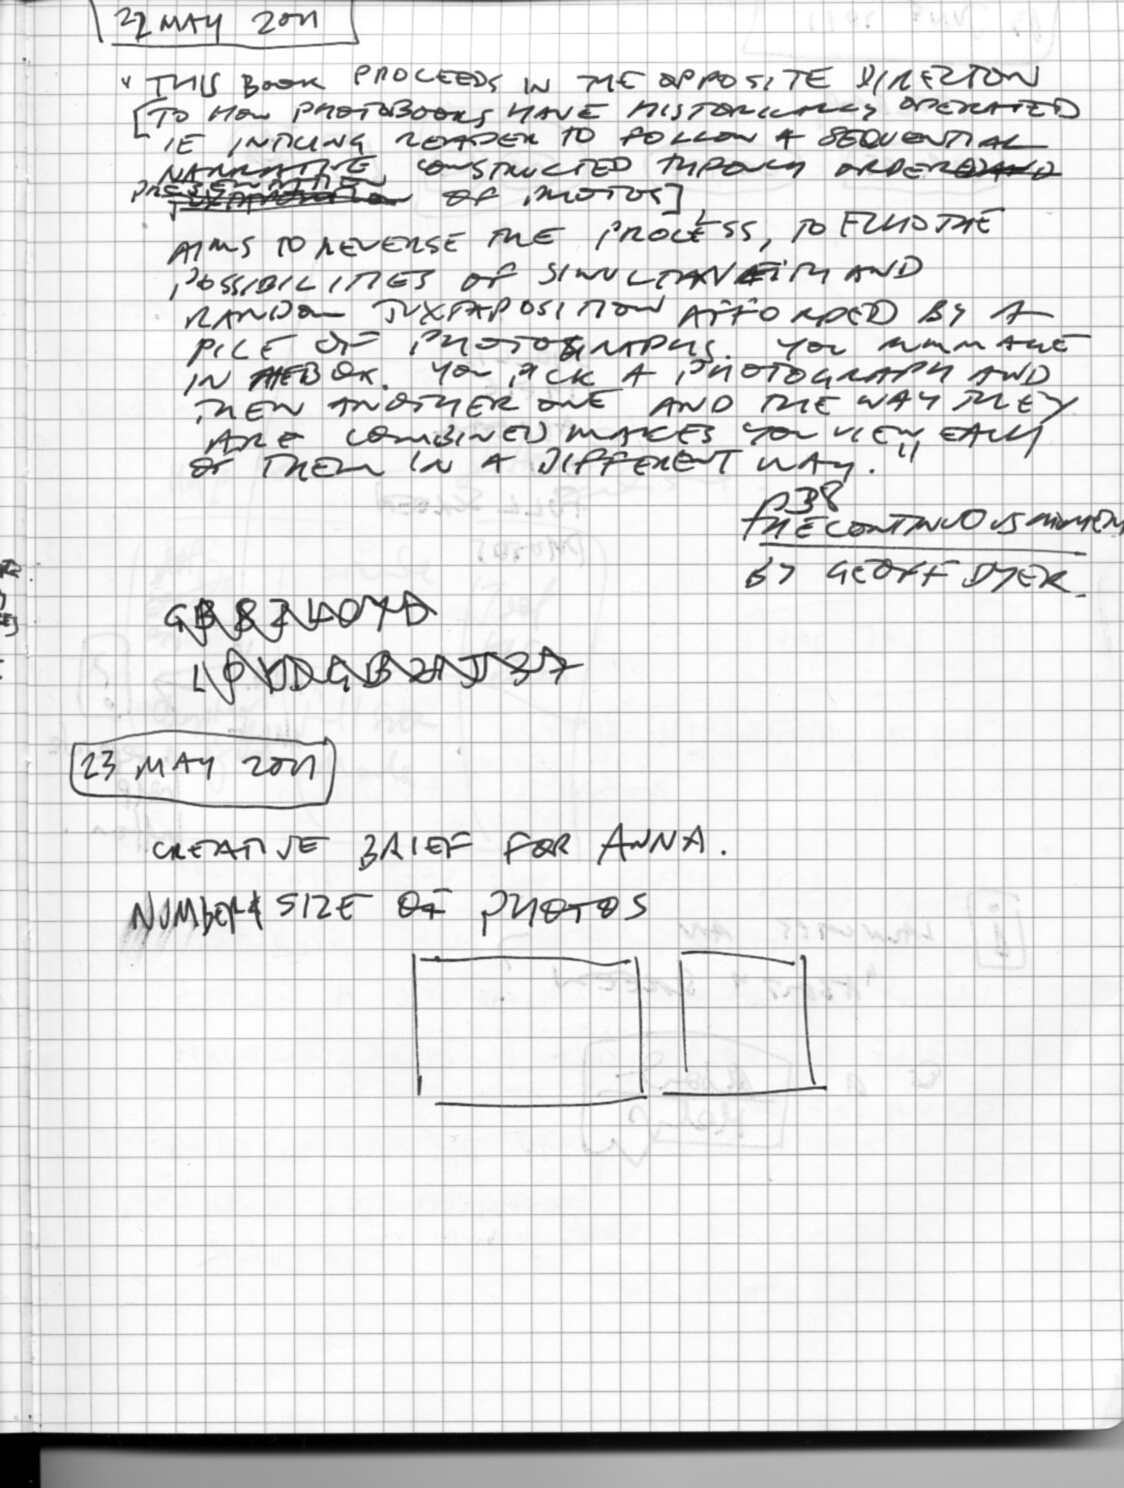 22 MAY 2011
"THIS BOOK PROCEEDS IN THE OPPOSITE DIRECTION
[TO HOW PHOTOBOOKS HAVE HISTORICALLY OPERATED
IE INTICING READER TO FOLLOW A SEQUENTIAL
NARRATIVE, CONSTRUCTED THROUGH ORDERED
PRESENTATION OF PHOTOS]
AIMS TO REVERSE THE PROCESS, TO FIND THE
POSSIBILITIES OF SIMULTANEITY AND
RANDOM JUXTAPOSITION AFFORDED BY A
PILE OF PHOTOGRAPHS. YOU RUMMAGE
IN THE BOX. YOU PICK A PHOTOGRAPH AND
THEN ANOTHER ONE AND THE WAY THEY
ARE COMBINED MAKES YOU VIEW EACH
OF THEM IN A DIFFERENT WAY."
p38
THE CONTINUOUS MOMENT
BY GEOFF DYER.
23 MAY 2011
CREATIVE BRIEF FOR ANNA.
NUMBER & SIZE OF PHOTOS